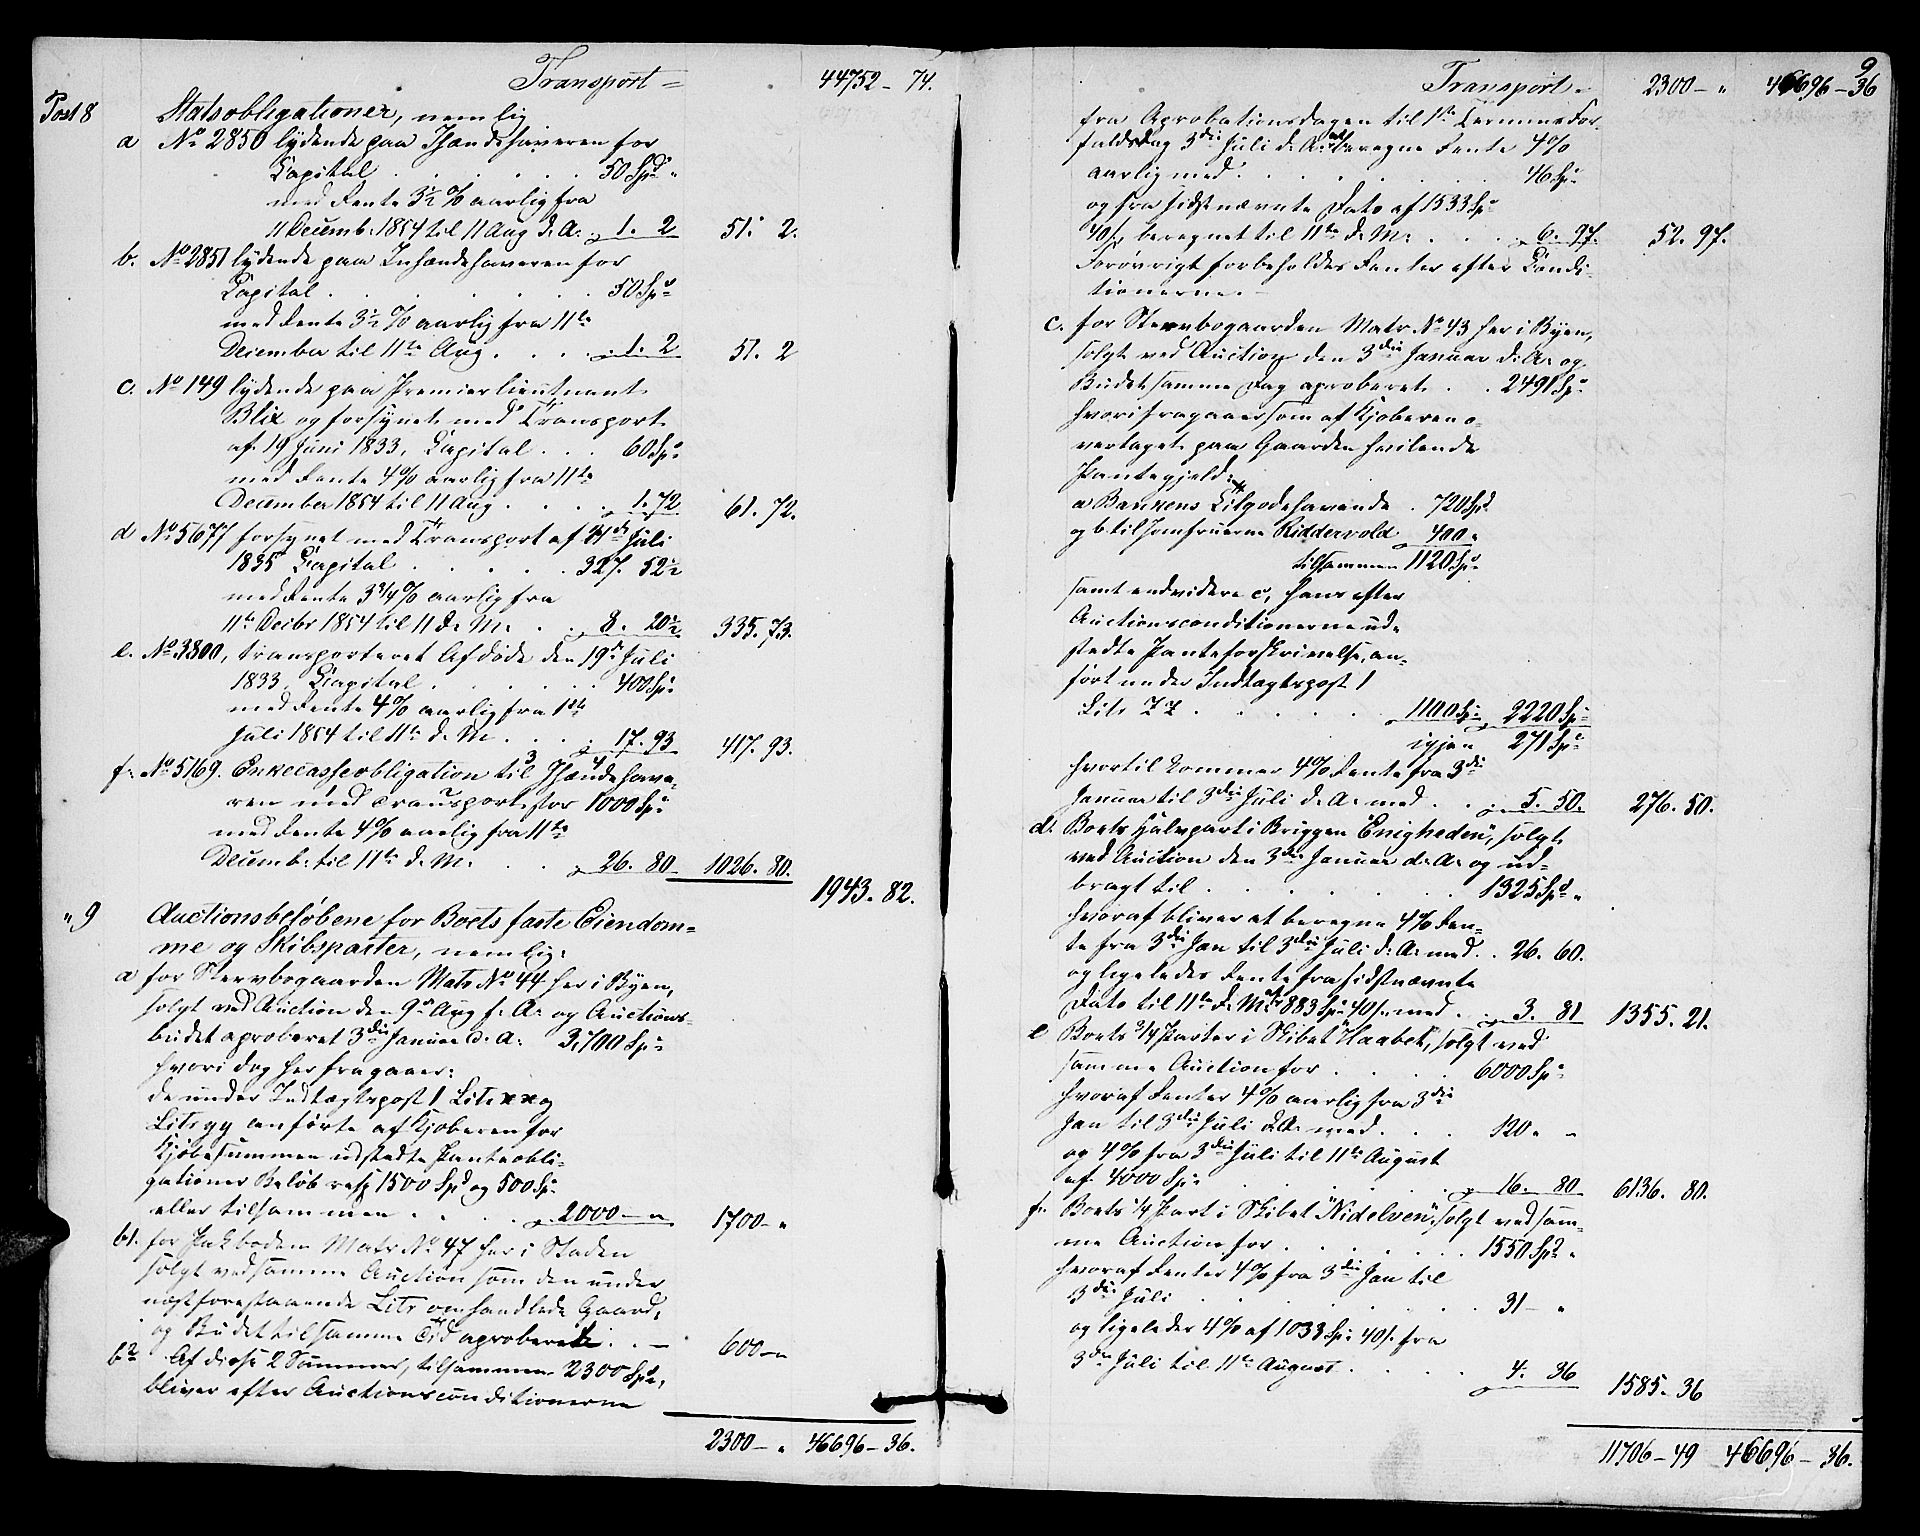 Transport = 44752 - 74.
Post 8 Statsobligationer, nemlig
a No 2850 lydende paa Ihændehaveren for
Capital . . . . . 50 Spd "
med Rente 3 1/2 % aarlig fra
11 Decemb. 1854 til 11 Aug d. A. 1. 2 51. 2.
b. No 2851 lydende paa Inhændehaveren for
Capital . . . . . . 50 Spd
med Rente 3 1/2 % aarlig fra 11te
December til 11te Aug . . . . 1. 2 51. 2
c. No 149 lydende paa Premierlieutnant
Blix og forsynet med Transport
af 19 Juni 1833, Capital . . . 60 Sp:
med Rente 4% aarlig fra 11te
December 1854 til 11 Aug . . . . 1. 72 61. 72.
d No 5677 forsynet med Transport af Juli
1835 Capital . . . . . 327. 52 1/2
med Rente 3 3/4 % aarlig fra
11te Decbr 1854 til 11 d. M. . . 8. 20 1/2 335. 73.
e. No 3800, transporteret Afdøde den 19de Juli
1833, Capital . . . . . . 400 Sp:
med Rente 4% aarlig fra 1ste
Juli 1854 til 11te d. M. . . . 17. 93 417. 93.
f. No 5169. Enkecasseobligation til Ihændehave-
ren med Transport stor 1000 Sp:
med Rente 4% aarlig fra 11te
Decemb. til 11te d. M. . . 26. 80 1026. 80.
1943. 82.
" 9 Auctionsbeløbene for Boets faste Eiendom-
me og Skibsparter, nemlig:
a for Stervbogaarden Matr No 44 her i Byen,
solgt ved Auction den 9de Aug f. A. og Auctions-
budet aproberet 3die Januar d. A. 3,700 Sp:
hvori dog her fragaaer:
de under Indtægtspost 1 Litr xx og
Litr yy anførte af Kjøberen for
Kjøbesummen udstedte Panteobli-
gationer Beløb resp 1500 Spd og 500 Sp:
eller tilsammen . . . . 2000 - " 1700 - "
b1. for Pakboden Matr No 47 her i Staden
solgt ved samme Auction som den under
næstforestaaende Litr omhandlede Gaard,
og Budet til samme Tid aproberet . . - 600 - "
b2 Af disse 2 Summer, tilsammen 2300 Spd,
bliver efter Auctionsconditionerne
2300 - " 46696 - 36.
9
Transport = 2300 - " 46696 - 36
fra Aprobationsdagen til 1ste Termins For-
faldsdag 3die Juli d. A. at beregne Rente 4%
aarlig med . . . . . . 46 Sp:
og fra sidstnævnte Dato af 1533 Sp:
40 s. beregnet til 11te d. M. . . . 6. 97. 52. 97.
Forøvrigt forbeholdes Renter efter Condi-
tionerne. -
c. for Stervbogaarden Matr. No 43 her i Byen,
solgt ved Auction den 3die Januar d. A. og
Budet samme Dag aproberet . . 2491 Sp:
hvori fragaaer som af Kjøberen o-
vertaget paa Gaarden hvilende
Pantegjeld:
a Bankens Tilgodehavende . 720 Spd
og b. til Jomfruerne Riddervold 400 "
tilsammen 1120 Sp:
samt endvidere c, hans efter
Auctionsconditionerne ud-
stedte Panteforskrivelse, an-
ført under Indtægtspost 1
Litr ZZ . . . . . . 1100 Sp: 2220 Sp:
igjen 271 Sp:
hvortil kommer 4% Rente fra 3die
Januar til 3die Juli d. A. med . . 5. 50. 276. 50.
d. Boets Halvpart i Briggen "Enigheden", solgt
ved Auction den 3die Januar d. A. og ud-
bragt til . . . . . . 1325 Spd "
hvoraf bliver at beregne 4% Ren-
te fra 3die Jan til 3die Juli d. A. med . . 26. 60.
og ligeledes Rente fra sidstnævnte
Dato til 11te d. M. af 883 Sp: 40 s. med . . 3. 81 1355. 21.
e Boets 3/4 Parter i Skibet "Haabet", solgt ved
samme Auction for . . . . 6000 Sp:
hvoraf Renter 4% aarlig fra 3die
Jan til 3die Juli d. A. med . . . 120 " "
og 4% fra 3die Juli til 11te August
af 4000 Sp: . . . . . 16. 80 6136. 80.
f. Boets 1/4 Part i Skibet "Nidelven", solgt ved sam-
me Auction for . . . . . . 1550 Spd "
hvoraf Renter 4% fra 3die Jan til
3die Juli . . . . . . 31 - "
og ligeledes 4% af 1033 Sp: 40 s. fra
3die Juli til 11te August . . . . 4. 36
1585 - 36
11706 - 49 46696 - 36.